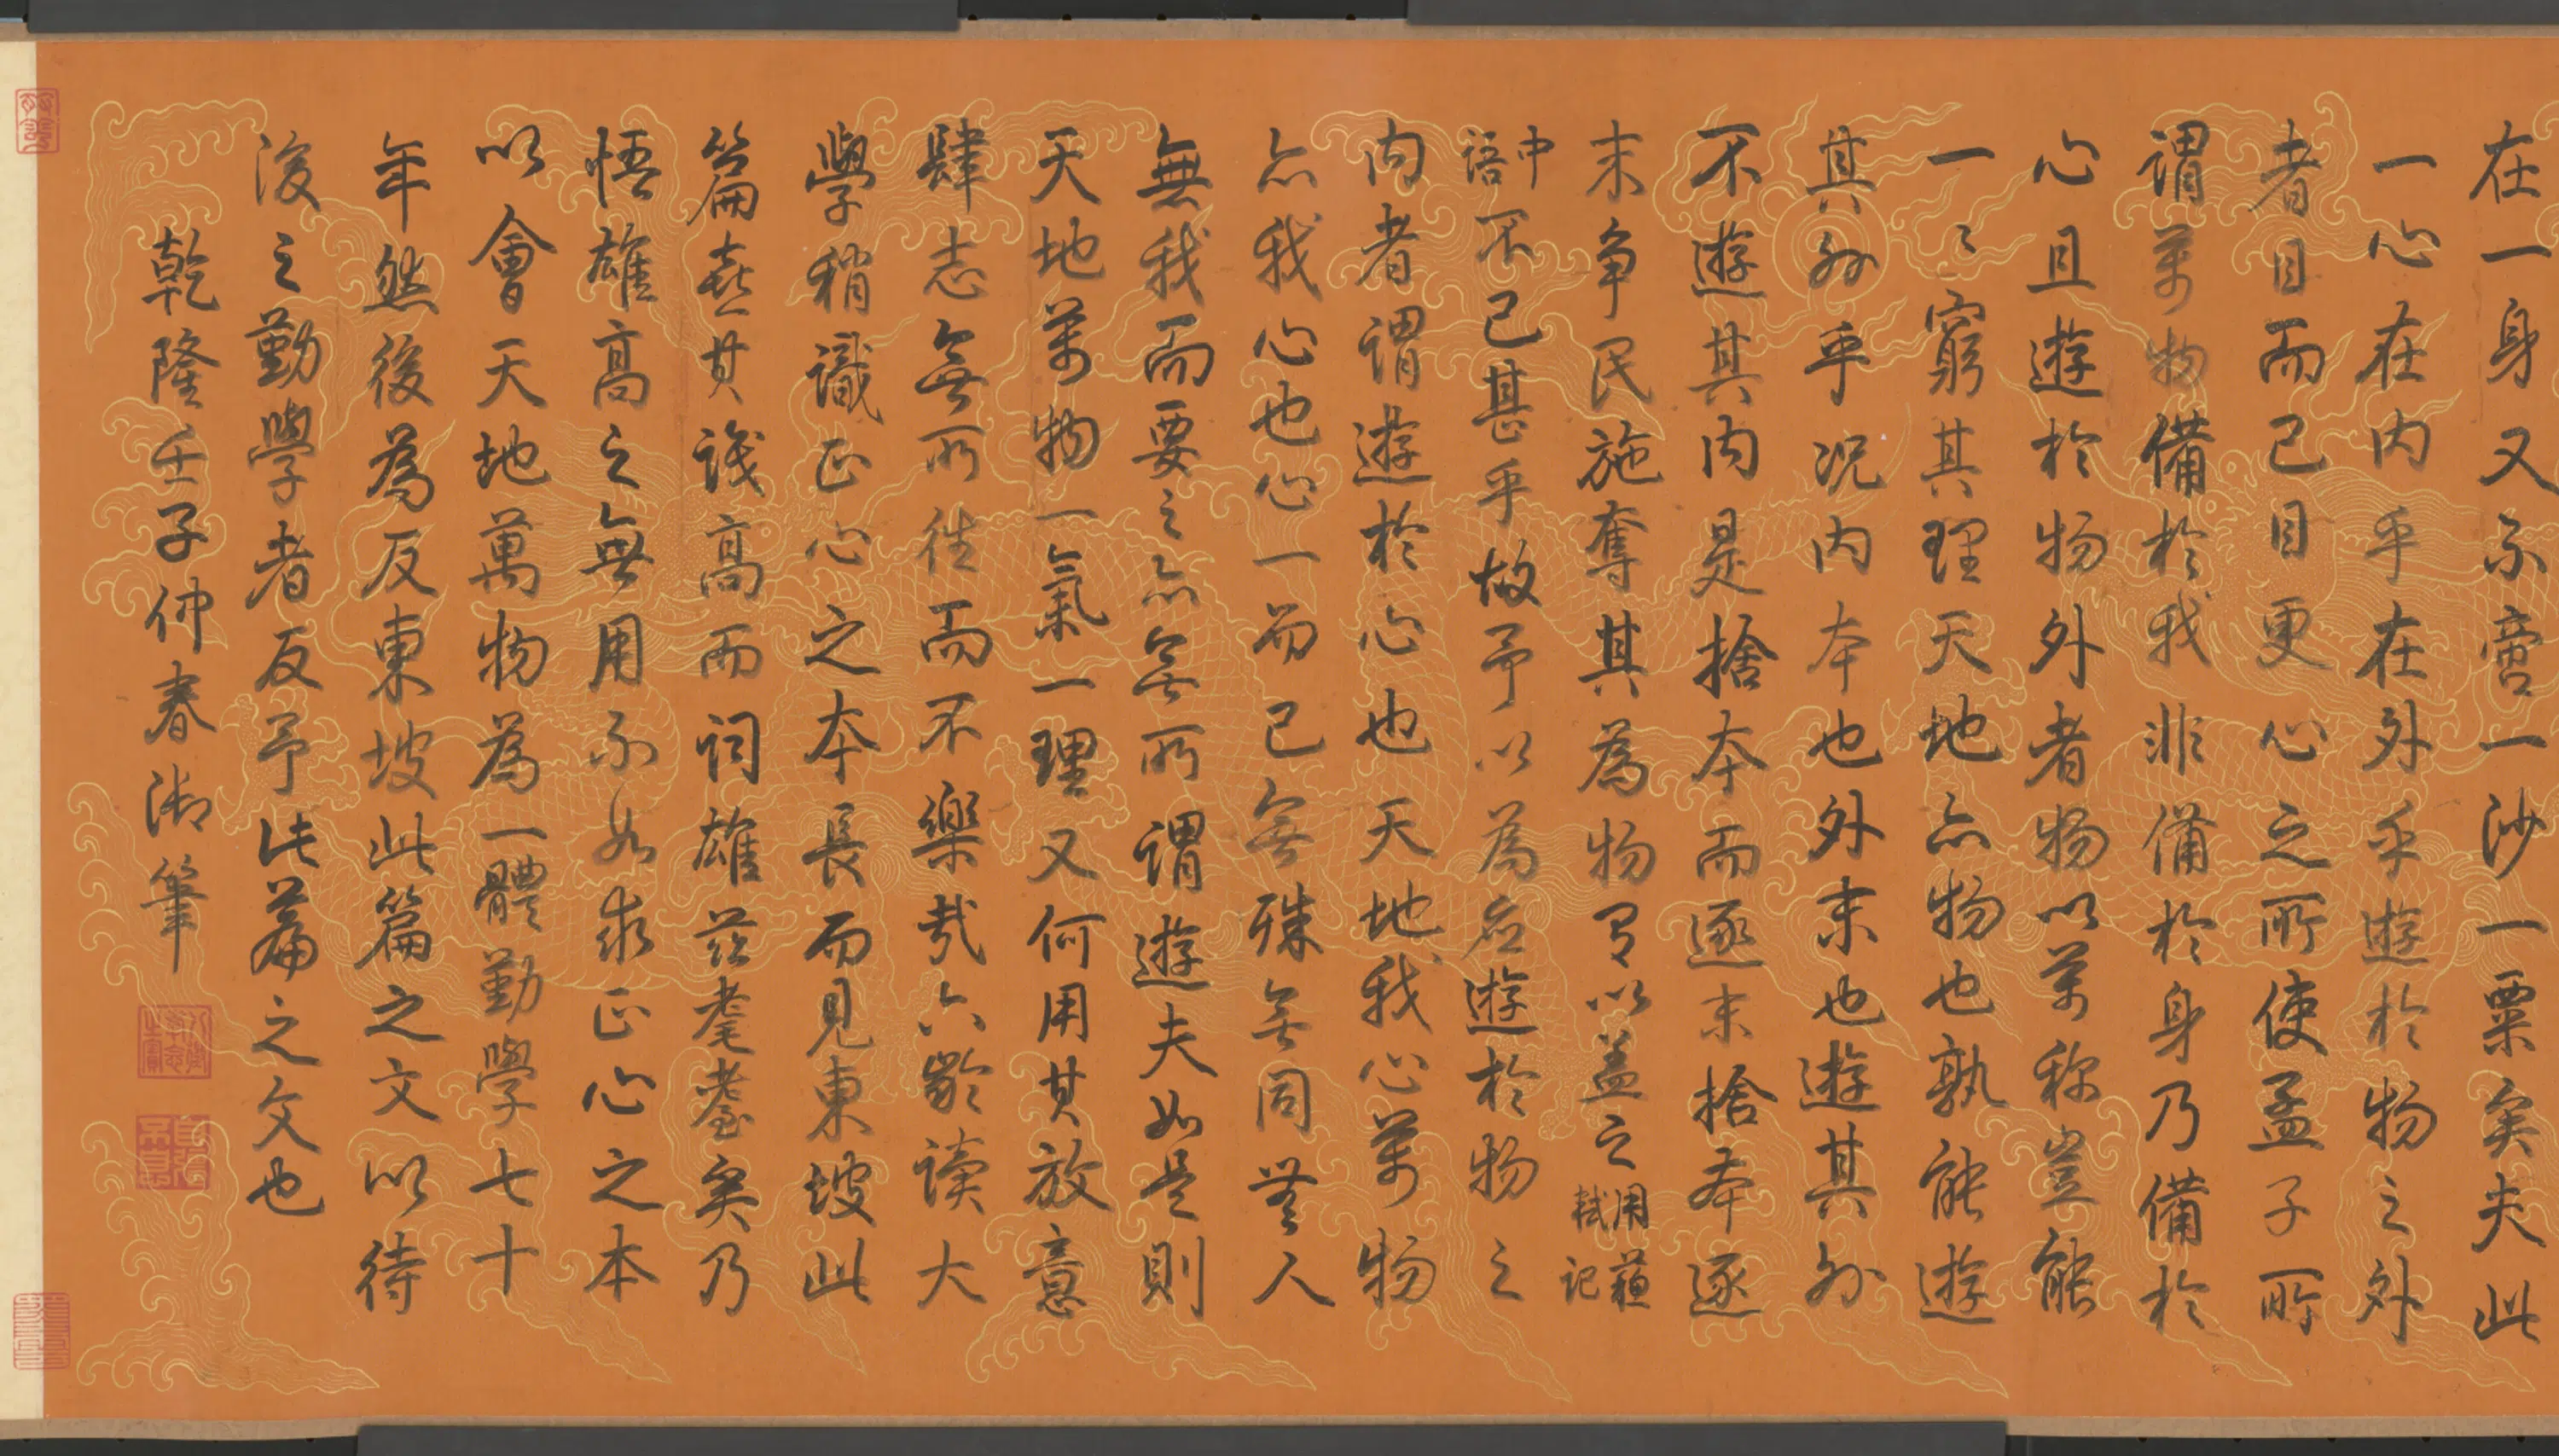 在一身又不啻一沙一粟矣夫此
一心在內乎在外乎遊於物之外
者目而已目更心之所使孟子所
謂萬物備於我非備於身乃備於
心且遊於物外者物以萬稱豈能
一々窮其理天地亦物也孰能遊
其外乎況內本也外末也遊其外
不遊其內是捨本而逐末捨本逐
末爭民施奪其為物有以蓋之用蘇軾記
中語不已甚乎故予以為應遊於物之
內者謂遊於心也天地我心萬物
亦我心也心一而已無殊無同無人
無我而要之亦無所謂遊夫如是則
天地萬物一氣一理又何用其放意
肆志無所往而不樂哉六齡讀大
學稍識正心之本長而見東坡此
篇喜其識高而詞雄茲耄耋矣乃
悟雄高之無用不如求正心之本
以會天地萬物為一體勤學七十
年然後為反東坡此篇之文以待
後之勤學者反予此篇之文也
乾隆壬子仲春御筆